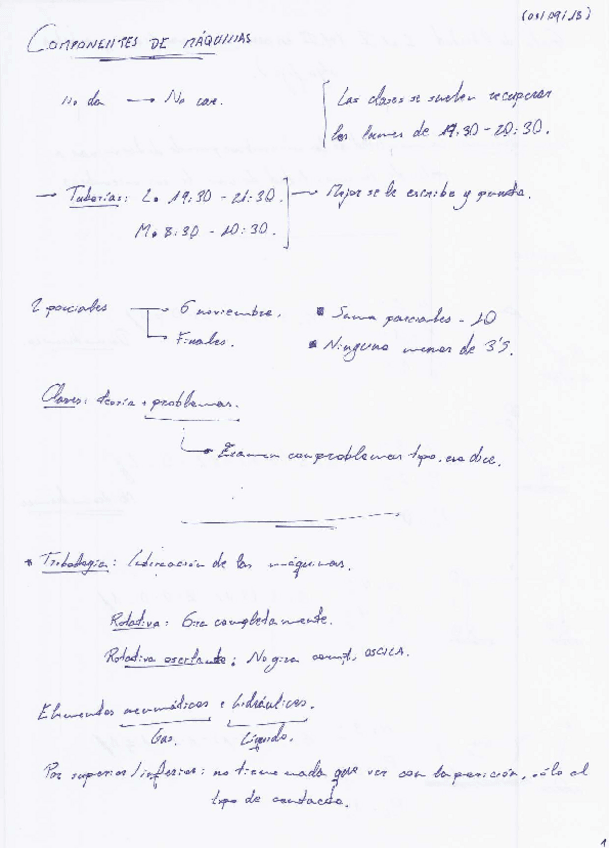 (09/09/13)
COMPONENTES DE MÁQUINAS
No da → No cae.
Las clases se suelen recuperar
los lunes de 19:30 - 20:30.
→ Tutorías: L. 19:30 - 21:30.
M. 8:30 - 10:30.
→ Mejor se le escribe y punto.
2 parciales → 6 noviembre.
→ Finales.
▪ Suma parciales - 10
▪ Ninguno menor de 3'5.
Clases: teoría + problemas.
→ Examen con problemas tipo, eso dice.
* Tribología: lubricación de las máquinas.
Rotativa: Gira completamente.
Rotativa oscilante: No gira compt, OSCILA.
Elementos neumáticos e hidráulicos.
Gas. Líquido.
Par superior/inferior: no tiene nada que ver con la posición, sólo al
tipo de contacto.
1